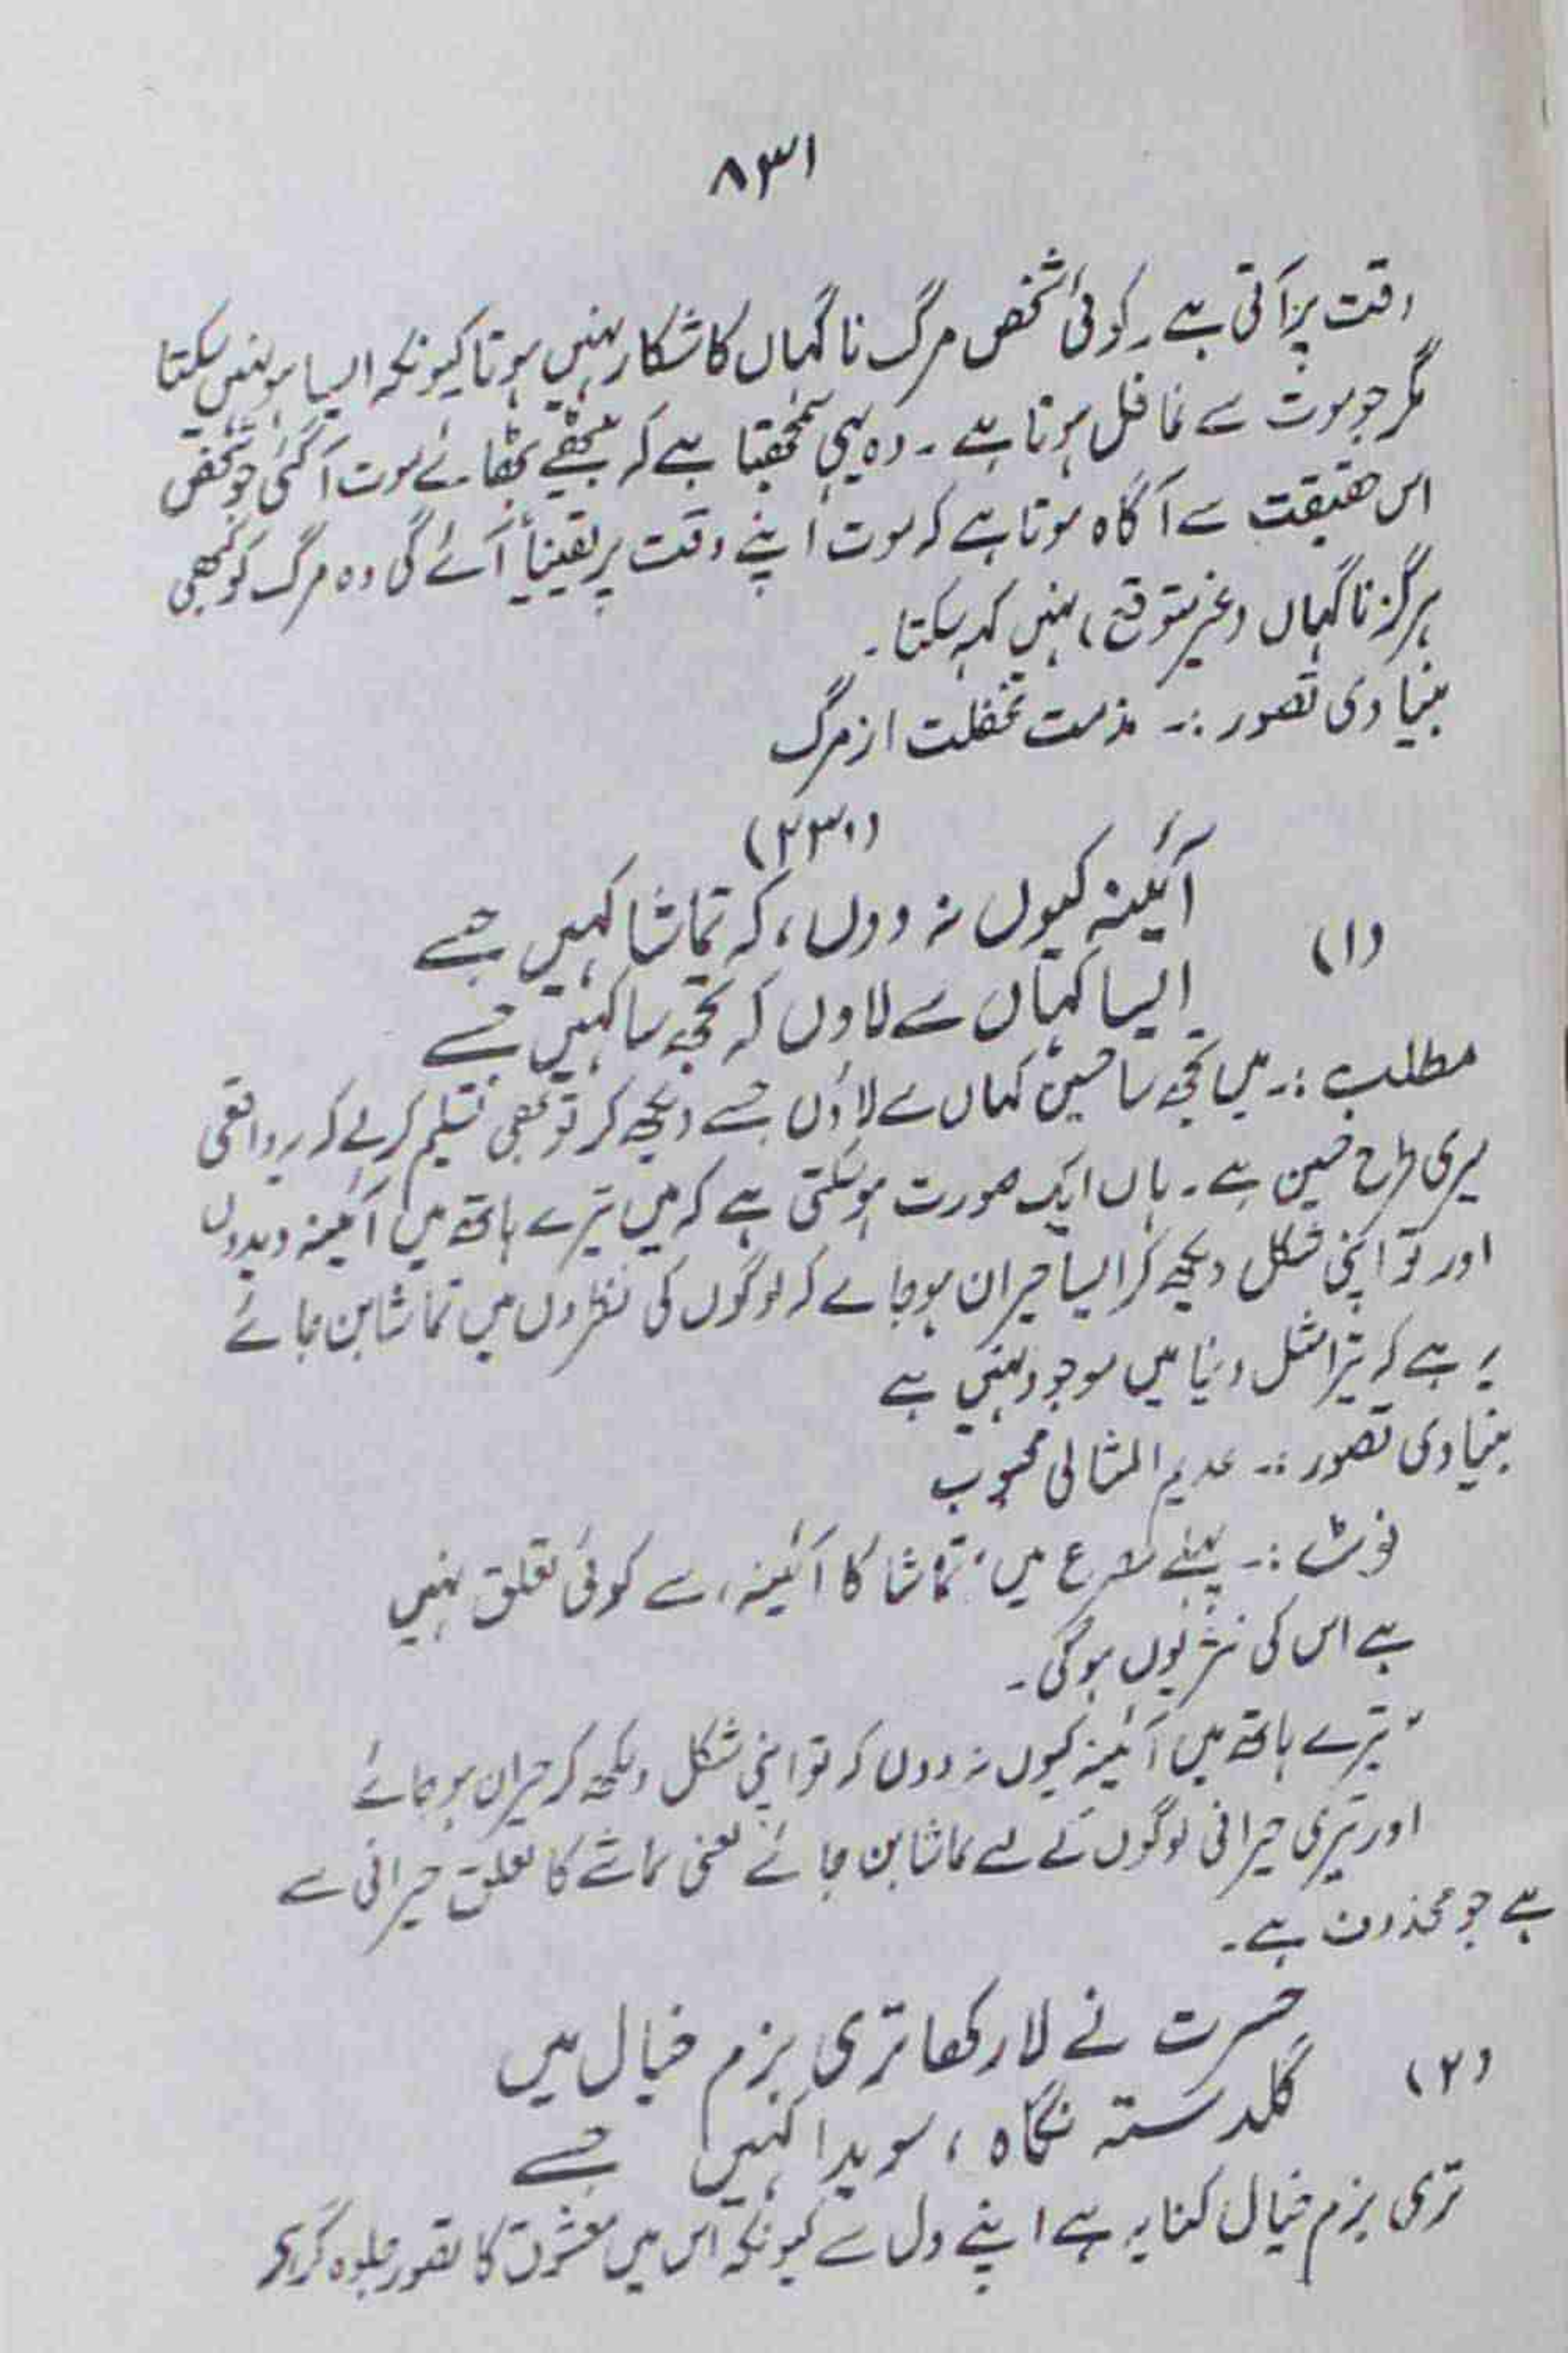 ۸۳۱
وقت پر آتی ہے ۔ کوئی شخص مرگ ناگہاں کا شکار نہیں ہوتا کیونکہ ایسا ہو نہیں سکتا
مگر جو موت سے غافل ہوتا ہے ۔ وہ یہی سمجھتا ہے کہ بیٹھے بٹھائے موت آ گئی جو شخص
اس حقیقت سے آگاہ ہوتا ہے کہ موت اپنے وقت پر یقیناً آئے گی وہ مرگ کو کبھی
ہرگز ناگہاں (غیر متوقع) نہیں کہہ سکتا ۔
بنیادی تصور :۔ مذمت غفلت از مرگ
(۲۳۰)
(۱) آئینہ کیوں نہ دوں ، کہ تماشا کہیں جسے
ایسا کہاں سے لاوں کہ تجھ سا کہیں جسے
مطلب :۔ میں تجھ سا حسین کہاں سے لاؤں جسے دیکھ کر تو بھی تسلیم کرلے کہ یہ واقعی
میری طرح حسین ہے ۔ ہاں ایک صورت ہو سکتی ہے کہ میں تیرے ہاتھ میں آئینہ دیدوں
اور تو اپنی شکل دیکھ کر ایسا حیران ہو جائے کہ لوگوں کی نظروں میں تماشا بن جائے
یہ ہے کہ تیرا مثل دنیا میں موجود نہیں ہے
بنیادی تصور :۔ عدیم المثالی محبوب
نوٹ :۔ پہلے مصرع میں ' تماشا کا آئینہ ' سے کوئی تعلق نہیں
ہے اس کی نثر یوں ہوگی ۔
" تیرے ہاتھ میں آئینہ کیوں نہ دوں کہ تو اپنی شکل دیکھ کر حیران ہو جائے
اور تیری حیرانی لوگوں کے لئے تماشا بن جائے یعنی تماشے کا تعلق حیرانی سے
ہے جو محذوف ہے ۔
(۲) حسرت نے لا رکھا تری بزم خیال میں
گلدستہ نگاہ ، سویدا کہیں جسے
تری بزم خیال کنایہ ہے اپنے دل سے کیونکہ اس میں معشوق کا تصور جلوہ گر ہے